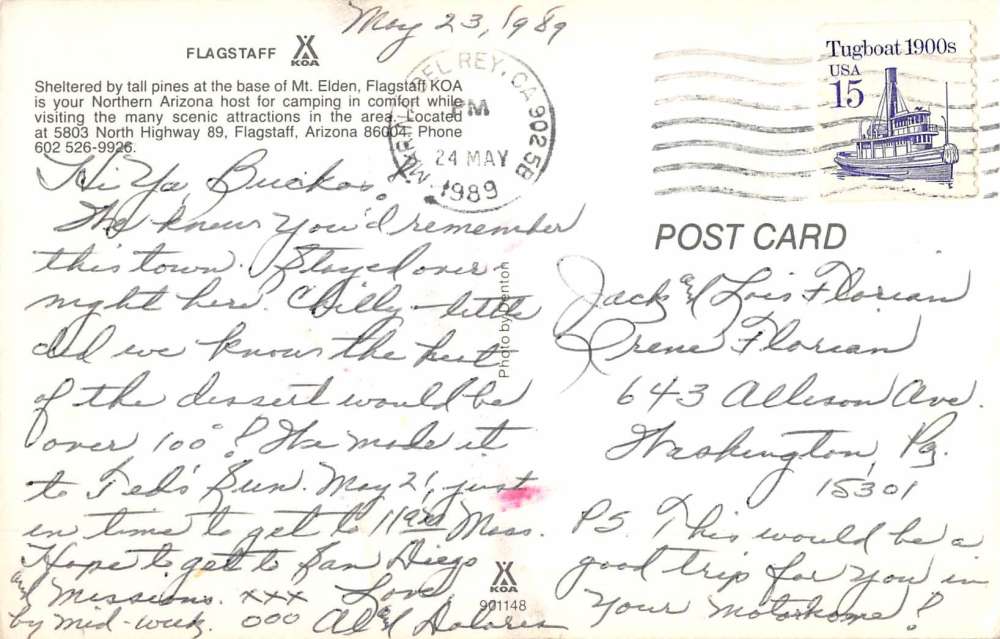 May 23, 1989
FLAGSTAFF KOA
Sheltered by tall pines at the base of Mt. Elden, Flagstaff KOA
is your Northern Arizona host for camping in comfort while
visiting the many scenic attractions in the area. Located
at 5803 North Highway 89, Flagstaff, Arizona 86004. Phone
602 526-9926.
MARINA DEL REY, CA 90258
PM
24 MAY
1989
Tugboat 1900s
USA
15
POST CARD
Hi Ya, Buckos!
We knew you'd remember
this town. Stayed over-
night here. Chilly - little
did we know the heat
of the dessert would be
over 100°! We made it
to Ted's Sun. May 21, just
in time to get to 11 a.m. Mass.
Hope to get to San Diego
and Missions. xxx Love,
by mid-week. 000 Al and Dolores
Photo by Denton
KOA
901148
Jack and Lois Florian
Irene Florian
643 Allison Ave.
Washington, Pa.
15301
P.S. This would be a
good trip for you in
your motorhome!